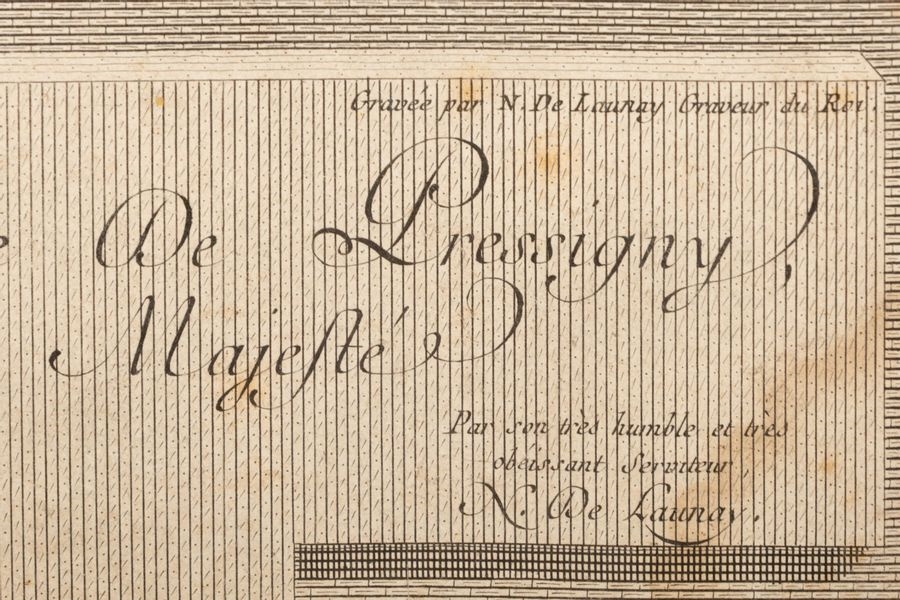 Gravée par N. De Launay Graveur du Roi.
De Pressigny,
Majesté
Par son très humble et très
obeissant Serviteur,
N. De Launay.